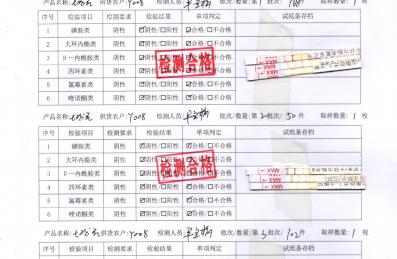 产品名称: 供货农户:Y008 检测人员: 批次/数量:第1批次/ 取样数量:1 枚
序号 检验项目 检测要求 检验结果 单项判定 试纸条存档
1 磺胺类 阴性 ☑阴性/□阳性 ☑合格/□不合格
2 大环内酯类 阴性 ☑阴性/□阳性 ☑合格/□不合格
3 β一内酰胺类 阴性 ☑阴性/□阳性 ☑合格/□不合格
4 四环素类 阴性 ☑阴性/□阳性 ☑合格/□不合格
5 氯霉素类 阴性 ☑阴性/□阳性 ☑合格/□不合格
6 喹诺酮类 阴性 ☑阴性/□阳性 ☑合格/□不合格
检测合格
MAX
MAX
产品名称: 供货农户:Y008 检测人员: 批次/数量:第2批次/50件 取样数量:1 枚
序号 检验项目 检测要求 检验结果 单项判定 试纸条存档
1 磺胺类 阴性 ☑阴性/□阳性 ☑合格/□不合格
2 大环内酯类 阴性 ☑阴性/□阳性 ☑合格/□不合格
3 β一内酰胺类 阴性 ☑阴性/□阳性 ☑合格/□不合格
4 四环素类 阴性 ☑阴性/□阳性 ☑合格/□不合格
5 氯霉素类 阴性 ☑阴性/□阳性 ☑合格/□不合格
6 喹诺酮类 阴性 ☑阴性/□阳性 ☑合格/□不合格
检测合格
MAX
MAX
产品名称: 供货农户:Y008 检测人员: 批次/数量:第3批次/102件 取样数量:1 枚
序号 检验项目 检测要求 检验结果 单项判定 试纸条存档